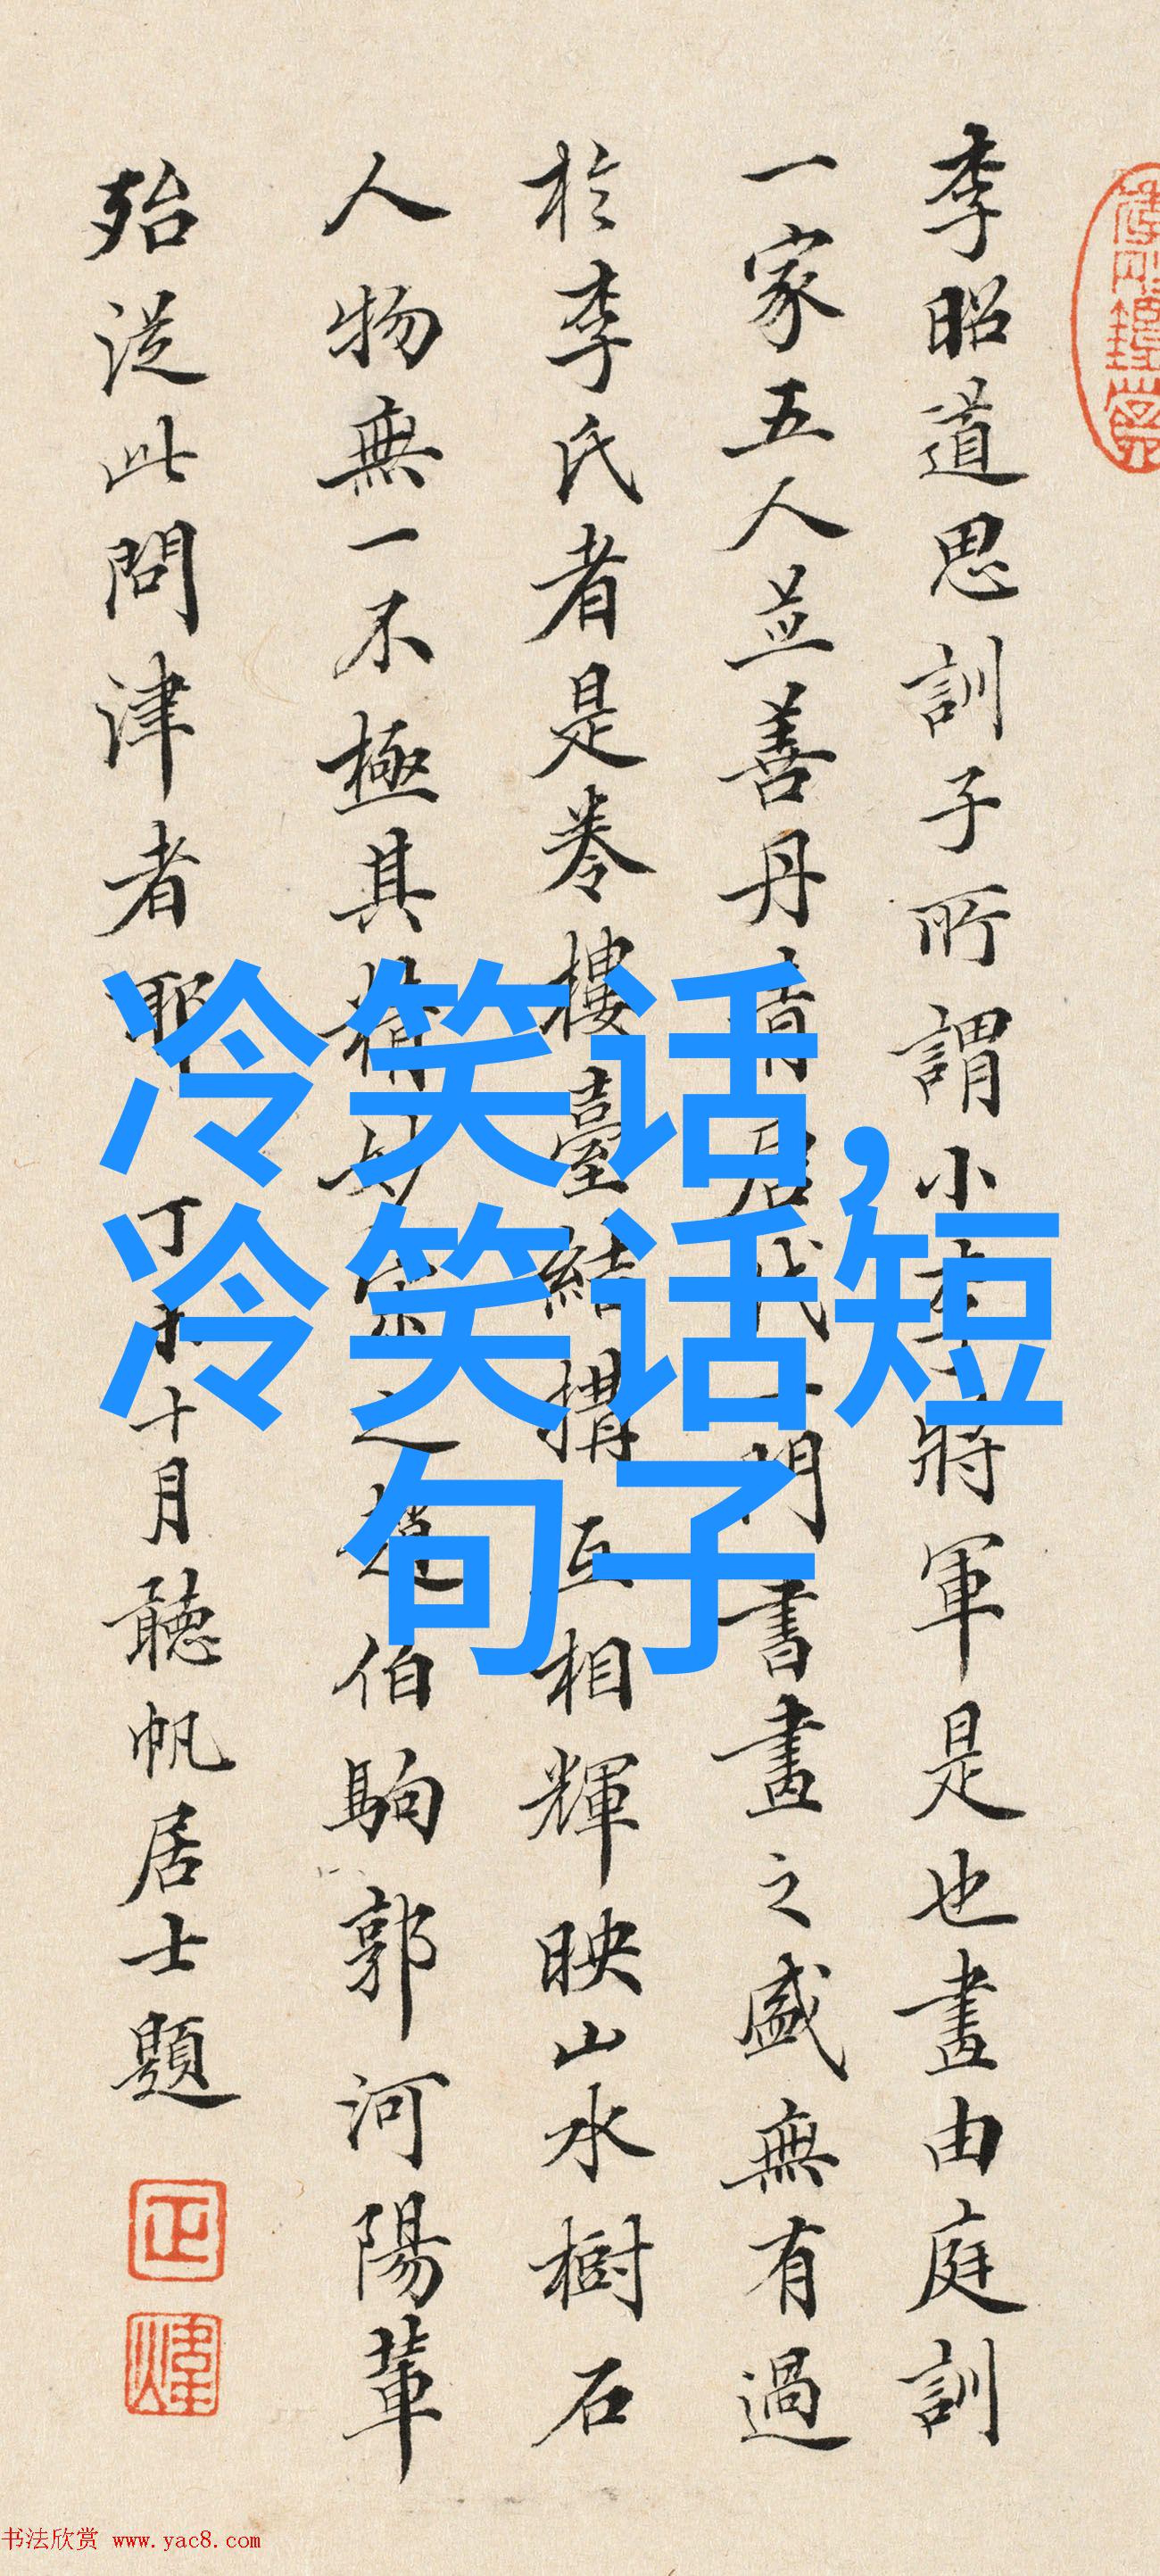 李昭道思訓子所謂小李將軍是也畫由庭訓
一家五人並善丹青唐代一門書畫之盛無有過
於李氏者是卷樓臺結搆互相輝映山水樹石
人物無一不極其精妙宋之趙伯駒郭河陽輩
殆從此問津者耶 丁未十月聽帆居士題
正
煒
冷笑话,
冷笑话短
句子
书法欣赏 www.yac8.com